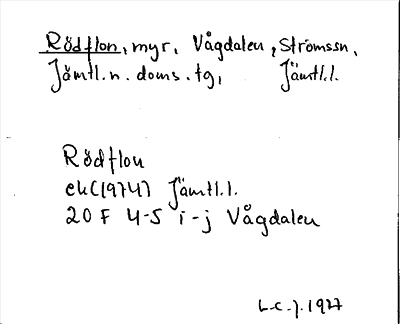 Rödflon, myr, Vågdalen, Strömssn,
Jämtl.n. doms. tg, Jämtl.l.
Rödflon
ek(1974) Jämtl.l.
20 F 4-5 i-j Vågdalen
L-C.J. 1977